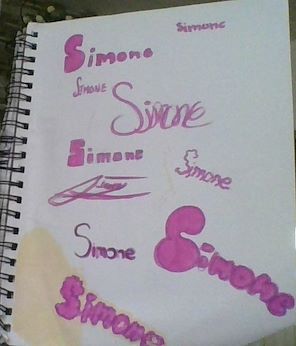 Simone
Simone
Simone
Simone
Simone
Simone
Simone
Simone
Simone